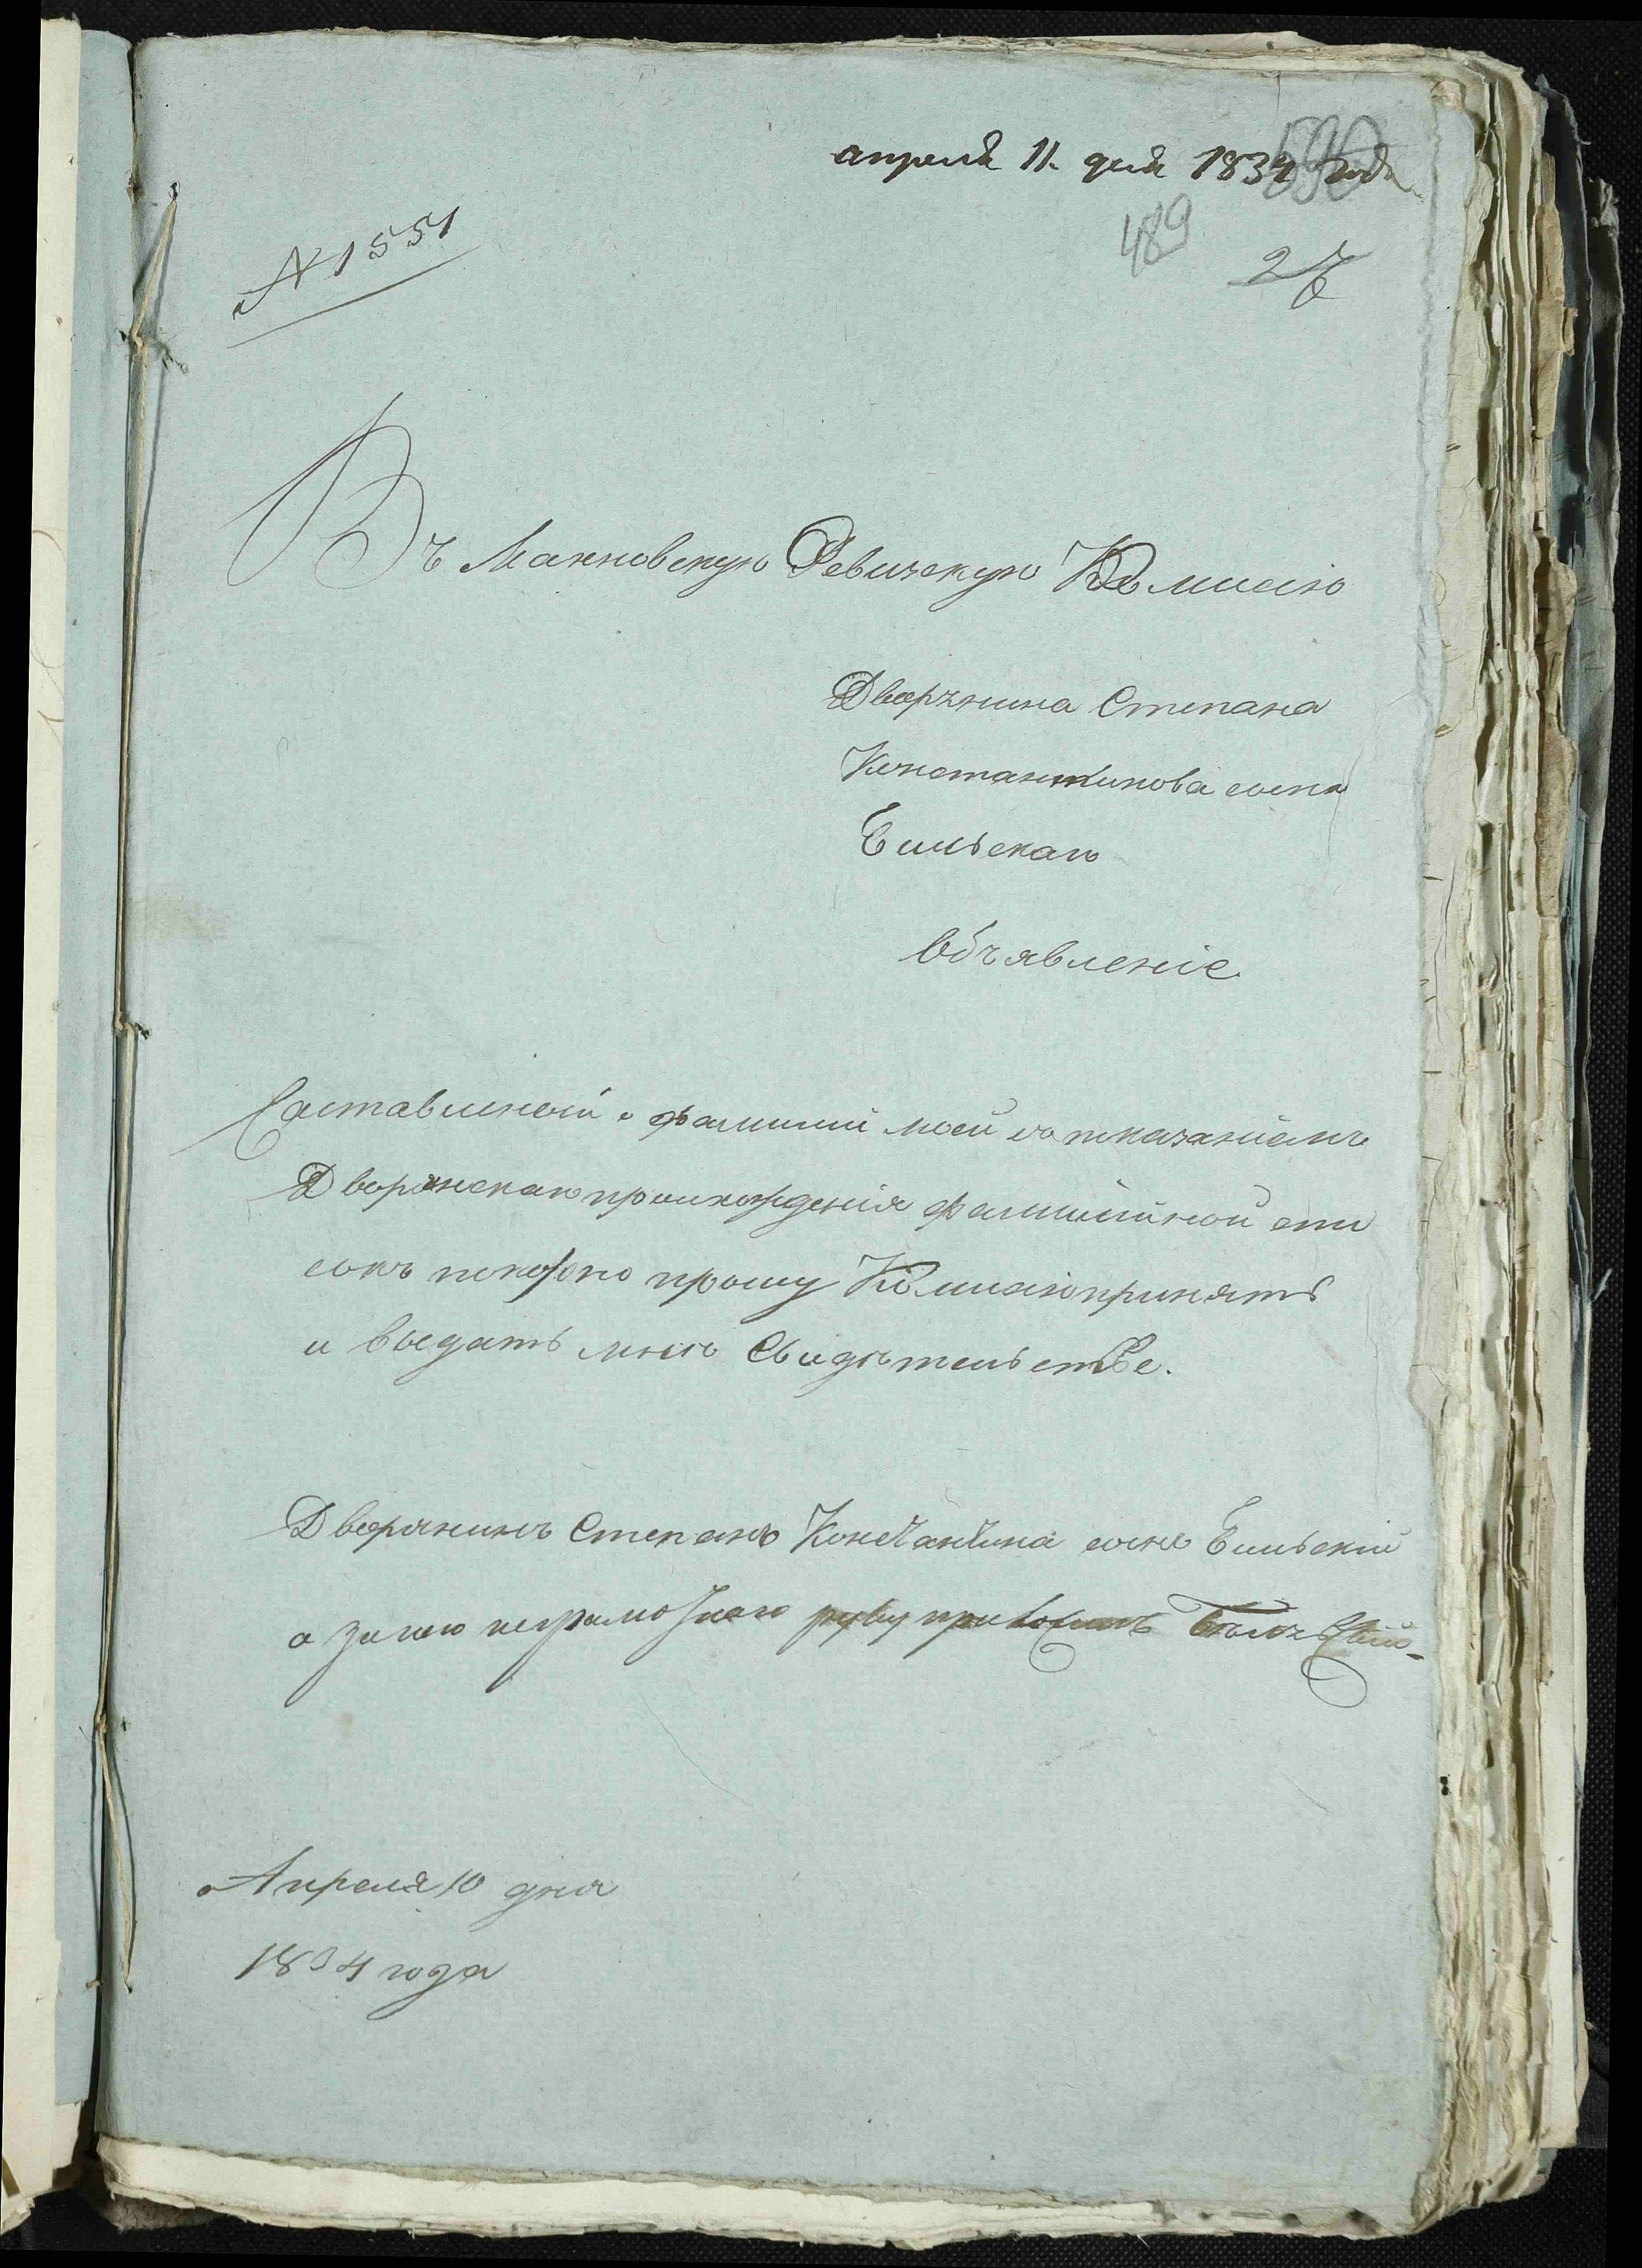 апреля 11. дня 1834 года
590
489
27
№ 1551
Въ Махновскую Ревизскую Комисію
Дворянина Степана
Константинова сына
Бильскаго
Объявленіе
Составленной о фамиліи моей съ показаніемъ
Дворянскаго происхожденія фамилійной спи
сокъ покорно прошу Комисію принять
и выдать мнѣ Свидѣтельстве.
Дворянинъ Степанъ Константина сынъ Бильскій
а за него неграмотнаго руку приложилъ
Апреля 10 дня
1834 года